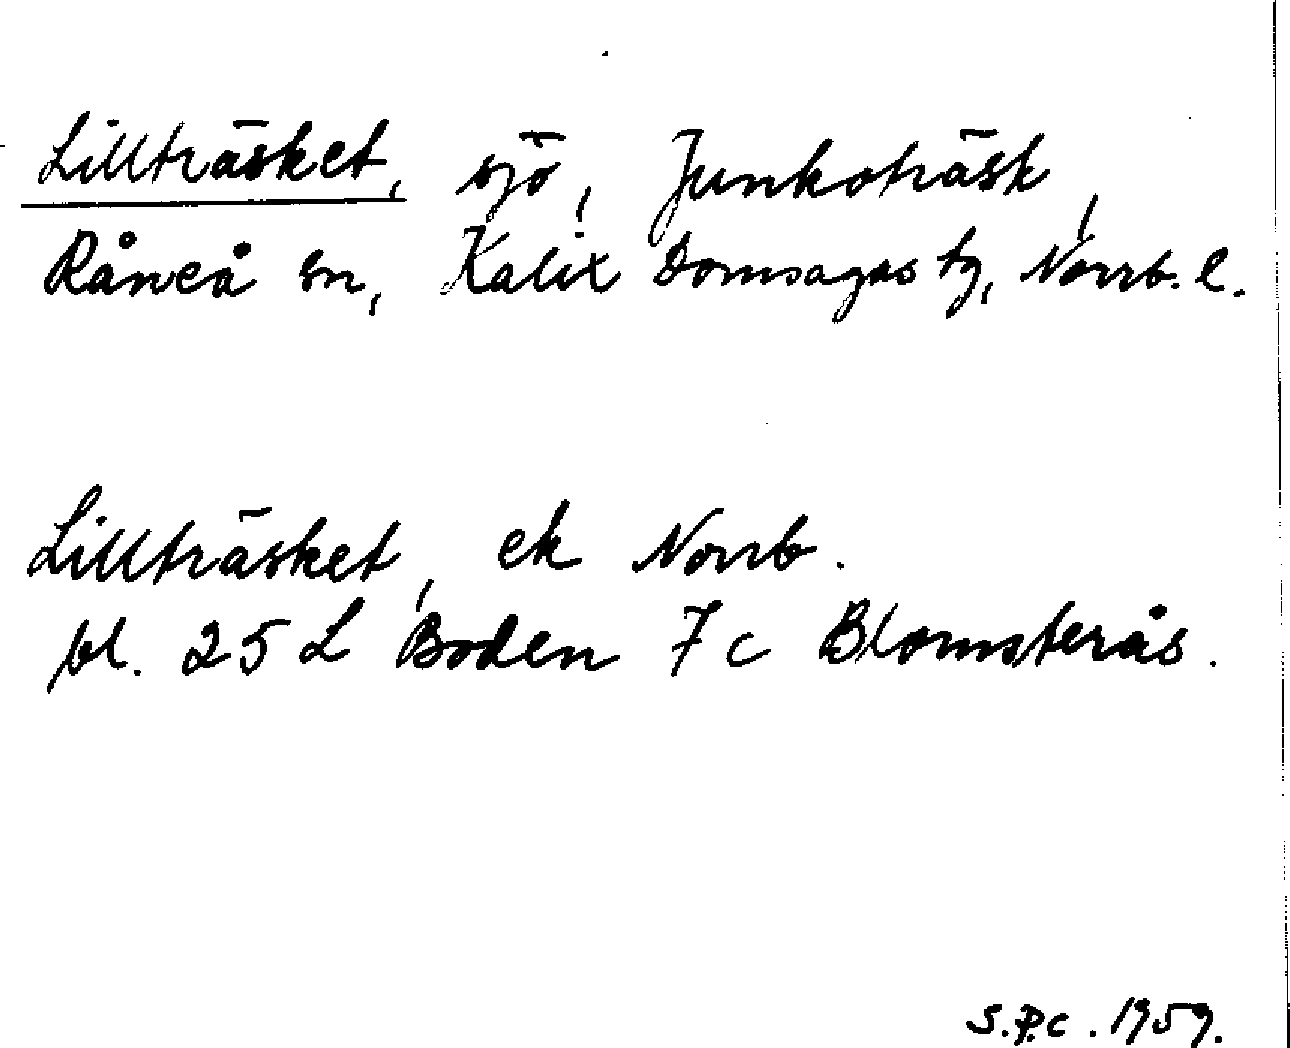 Lillträsket, sjö, Junkoträsk,
Råneå sn, Kalix Domsagas tg, Norrb. l.
Lillträsket, ek Norrb.
bl. 25 L Boden 7 c Blomsterås.
S.P.C. 1959.